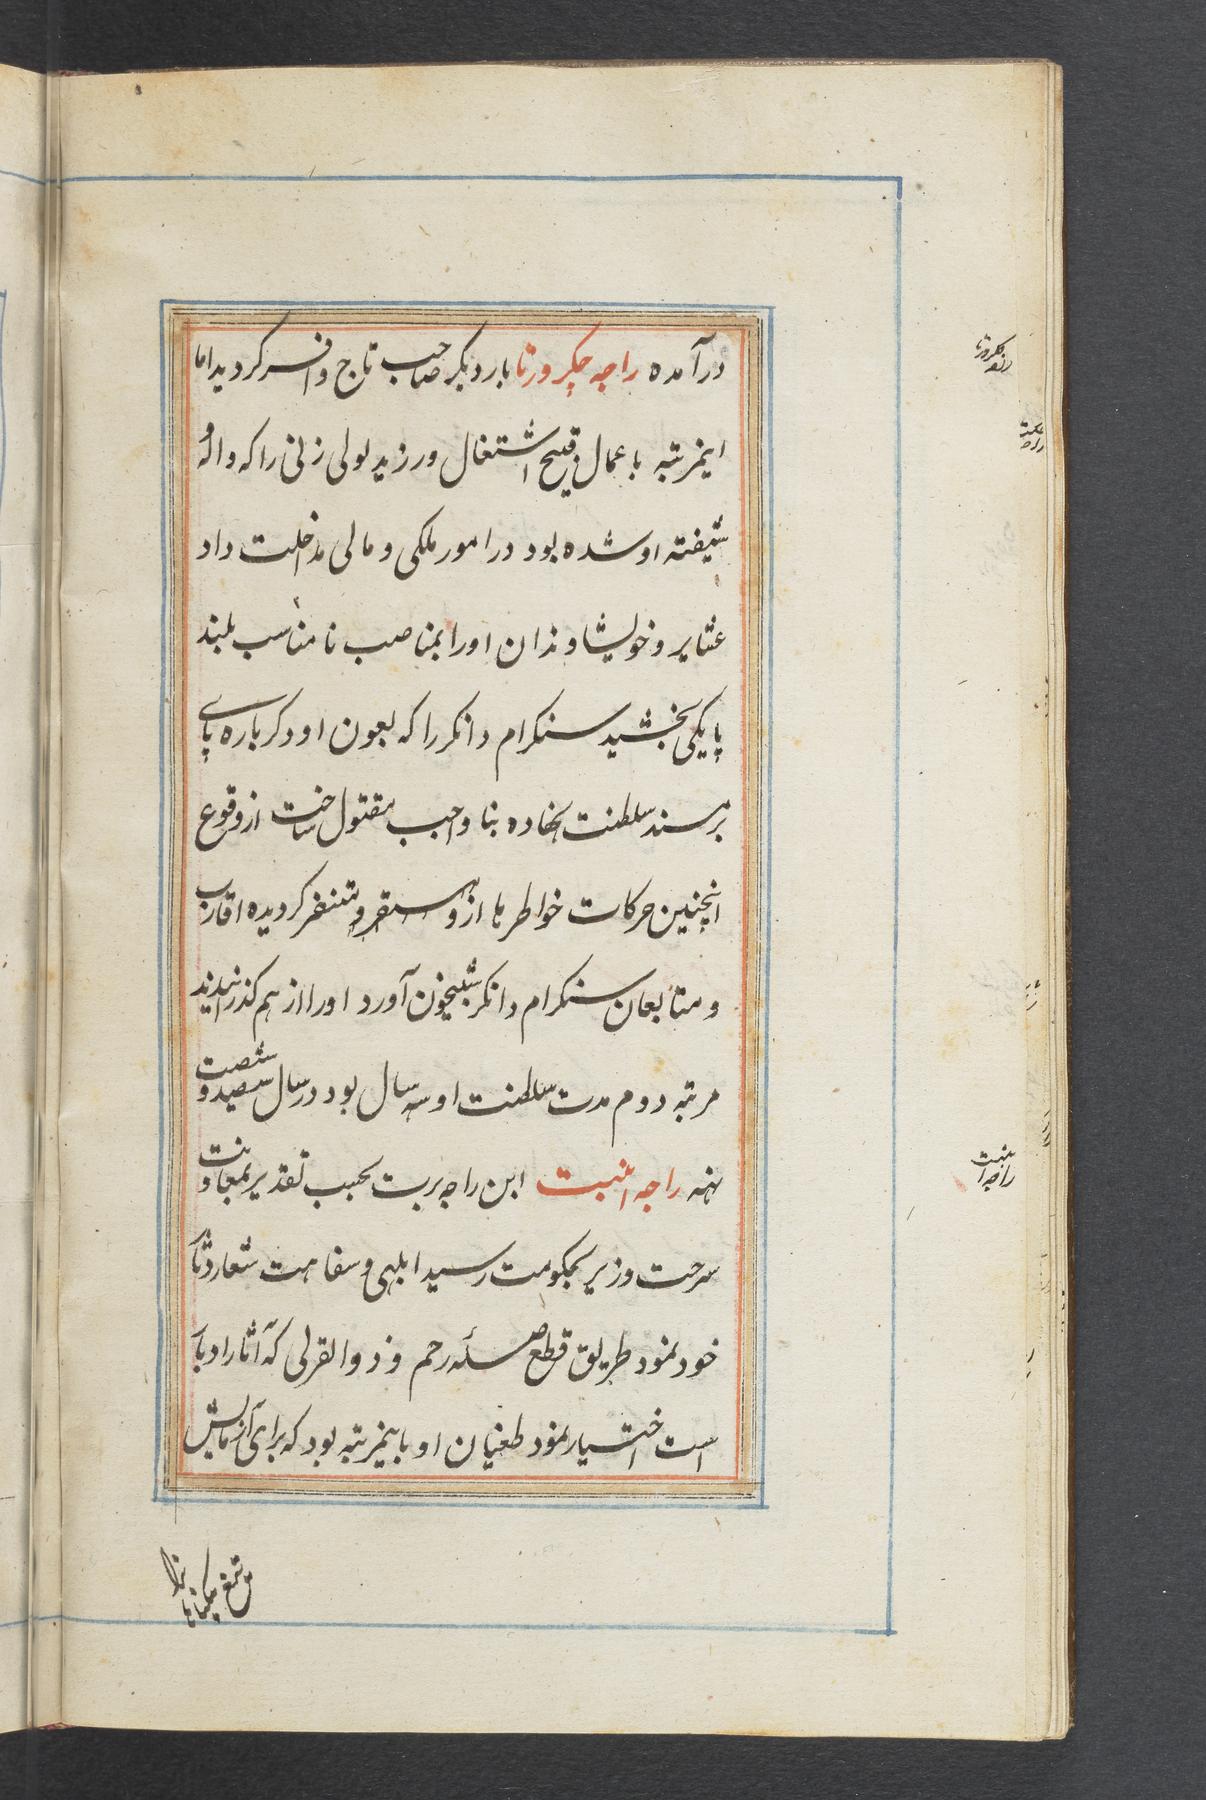 درآمده راجه چکرورتا بار دیگر صاحب تاج و افسر گردید اما
اینمرتبه باعمال قبیح اشتغال ورزید لولی زنی را که واله
شیفته او شده بود در امور ملکی و مالی مداخلت داد
عشایر و خویشاوندان او را بمناصب نامناسب بلند
پایکی بخشید سنکرام دانکر را که بعون او دکرباره پای
بر مسند سلطنت نهاده بنا واجب مقتول ساخت از وقوع
اینچنین حرکات خواطرها ازو متنفر گردیده اقارب
و متابعان سنکرام دانکر شبیخون آورد او را از هم گذرانیدند
مرتبه دوم مدت سلطنت او سه سال بود در سال سیصد و شصت
نهه راجه انبت ابن راجه پربت بحسب تقدیر بمعاونت
سرحت وزیر بحکومت رسید ابلهی و سفاهت شعار و دثار
خود نمود طریق قطع صله رحم و ذوالقربی که آثار ادبار
است اختیار نمود طغیان او باینمرتبه بود که برای آزمایش
راجه انبت